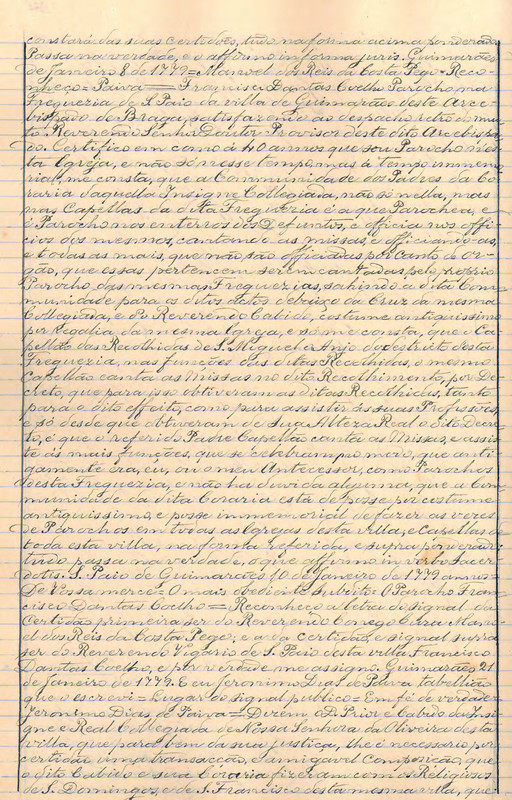 constará das suas certidões, tudo na forma acima ponderada
Passa na verdade, e o affirmo in forma juris. Guimarães
de janeiro 8 de 1779 = Manoel dos Reis da Costa Pego = Reco-
nheço = Paiva == Francisco Dantas Coelho Parocho na
Freguezia de S. Paio da villa de Guimarães deste Arce-
bispado de Braga, satisfazendo ao despacho retro do mui-
to Reverendo Senhor Doutor Provisor deste dito Arcebispa-
do. Certifico em como á 40 annos que sou Parocho nes-
ta Igreja, e não só nesse tempo, mas á tempo immem-
rial, me consta, que a Communidade dos Padres da Co-
raria daquella Insigne Collegiada, não só nella, mas
nas Capellas da dita Freguezia é a que Parochea, e
é Parocho nos enterros dos Defuntos, e officia nos offi-
cios dos mesmos, cantando as missas, e officiando-as,
e todas as mais, que não são officiadas por canto de or-
gão, que essas pertencem serem cantadas pelo proprio
Parocho das mesmas Freguezias, sahindo a dita Com-
munidade para os ditos actos debaixo da Cruz da mesma
Collegiada, e do Reverendo Cabido, costume antiquissimo
por Regallia da mesma Igreja, e só me consta, que o Ca-
pellão das Recolhidas de S. Miguel o Anjo do destricto desta
Freguezia, nas funções das ditas Recolhidas, o mesmo
Capellão canta as Missas no dito Recolhimento, por De-
creto, que para isso obtiveram as ditas Recolhidas, tanto
para o dito effeito, como para assistir ás suas Professões,
e só desde que obtiveram de sua Alteza Real o dito Decre-
to, é que o referido Padre Capellão canta as Missas, e assis-
te ás mais funções, que se celebram no meio, que anti-
gamente era, eu, ou o meu Antecessor, como Parochos
desta Freguezia, e não ha duvida alguma, que a Com-
munidade da dita Coraria está de posse por costume
antiquissimo, e posse immemorial de fazer as vezes
de Parochos em todas as Igrejas desta villa, e Capellas de
toda esta villa, na forma referida, e supra ponderada
tudo passa na verdade, o que affirmo in verbo Sacer-
dotis. S. Paio de Guimarães 10 de janeiro de 1779 annos =
De Vossa mercê = O mais obediente subdito O Parocho Fran-
cisco Dantas Coelho == Reconheço a letra do signal da
Certidão primeira ser do Reverendo Conego Cura Mano-
el dos Reis da Costa Pego; e a da certidão, e signal supra
ser do Reverendo Vigario de S. Paio desta villa Francisco
Dantas Coelho, e por verdade me assigno. Guimarães 21
de janeiro de 1779. E eu Jeronimo Dias de Paiva tabellião
que o escrevi = Lugar do signal publico = Em fé de verdade
Jeronimo Dias de Paiva == Dizem o D. Prior e Cabido da Insi-
gne e Real Collegiada de Nossa Senhora da Oliveira desta
villa, que para bem da sua justiça, lhe é necessario por
certidão uma transacção, e amigavel Composição, que
o dito Cabido e sua Coraria fizeram com os Religiosos
de S. Domingos, e de S. Francisco desta mesma villa, que